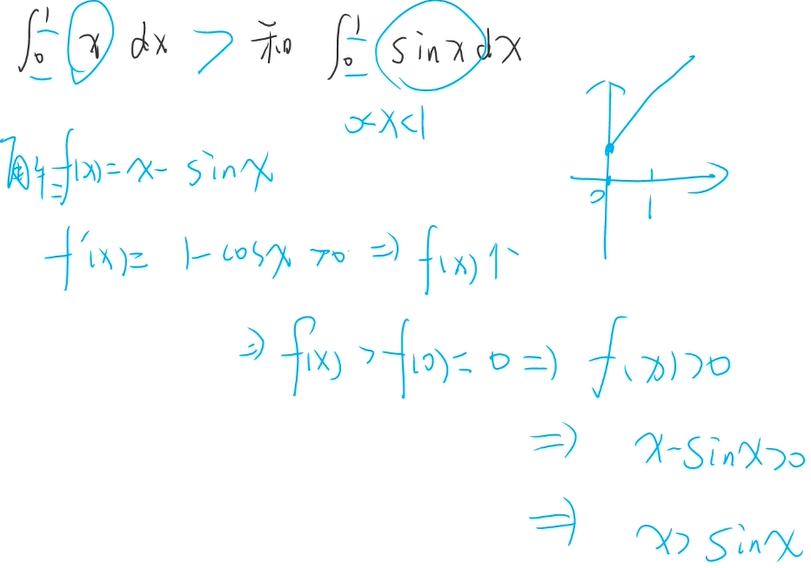 ∫₀¹ x dx > 和 ∫₀¹ sinx dx
0<x<1
解: f(x)= x- sinx
f'(x)= 1-cosx >0 ⇒ f(x)↑
⇒ f(x) > f(0)= 0 ⇒ f(x)>0
⇒ x-sinx>0
⇒ x> sinx
0 1